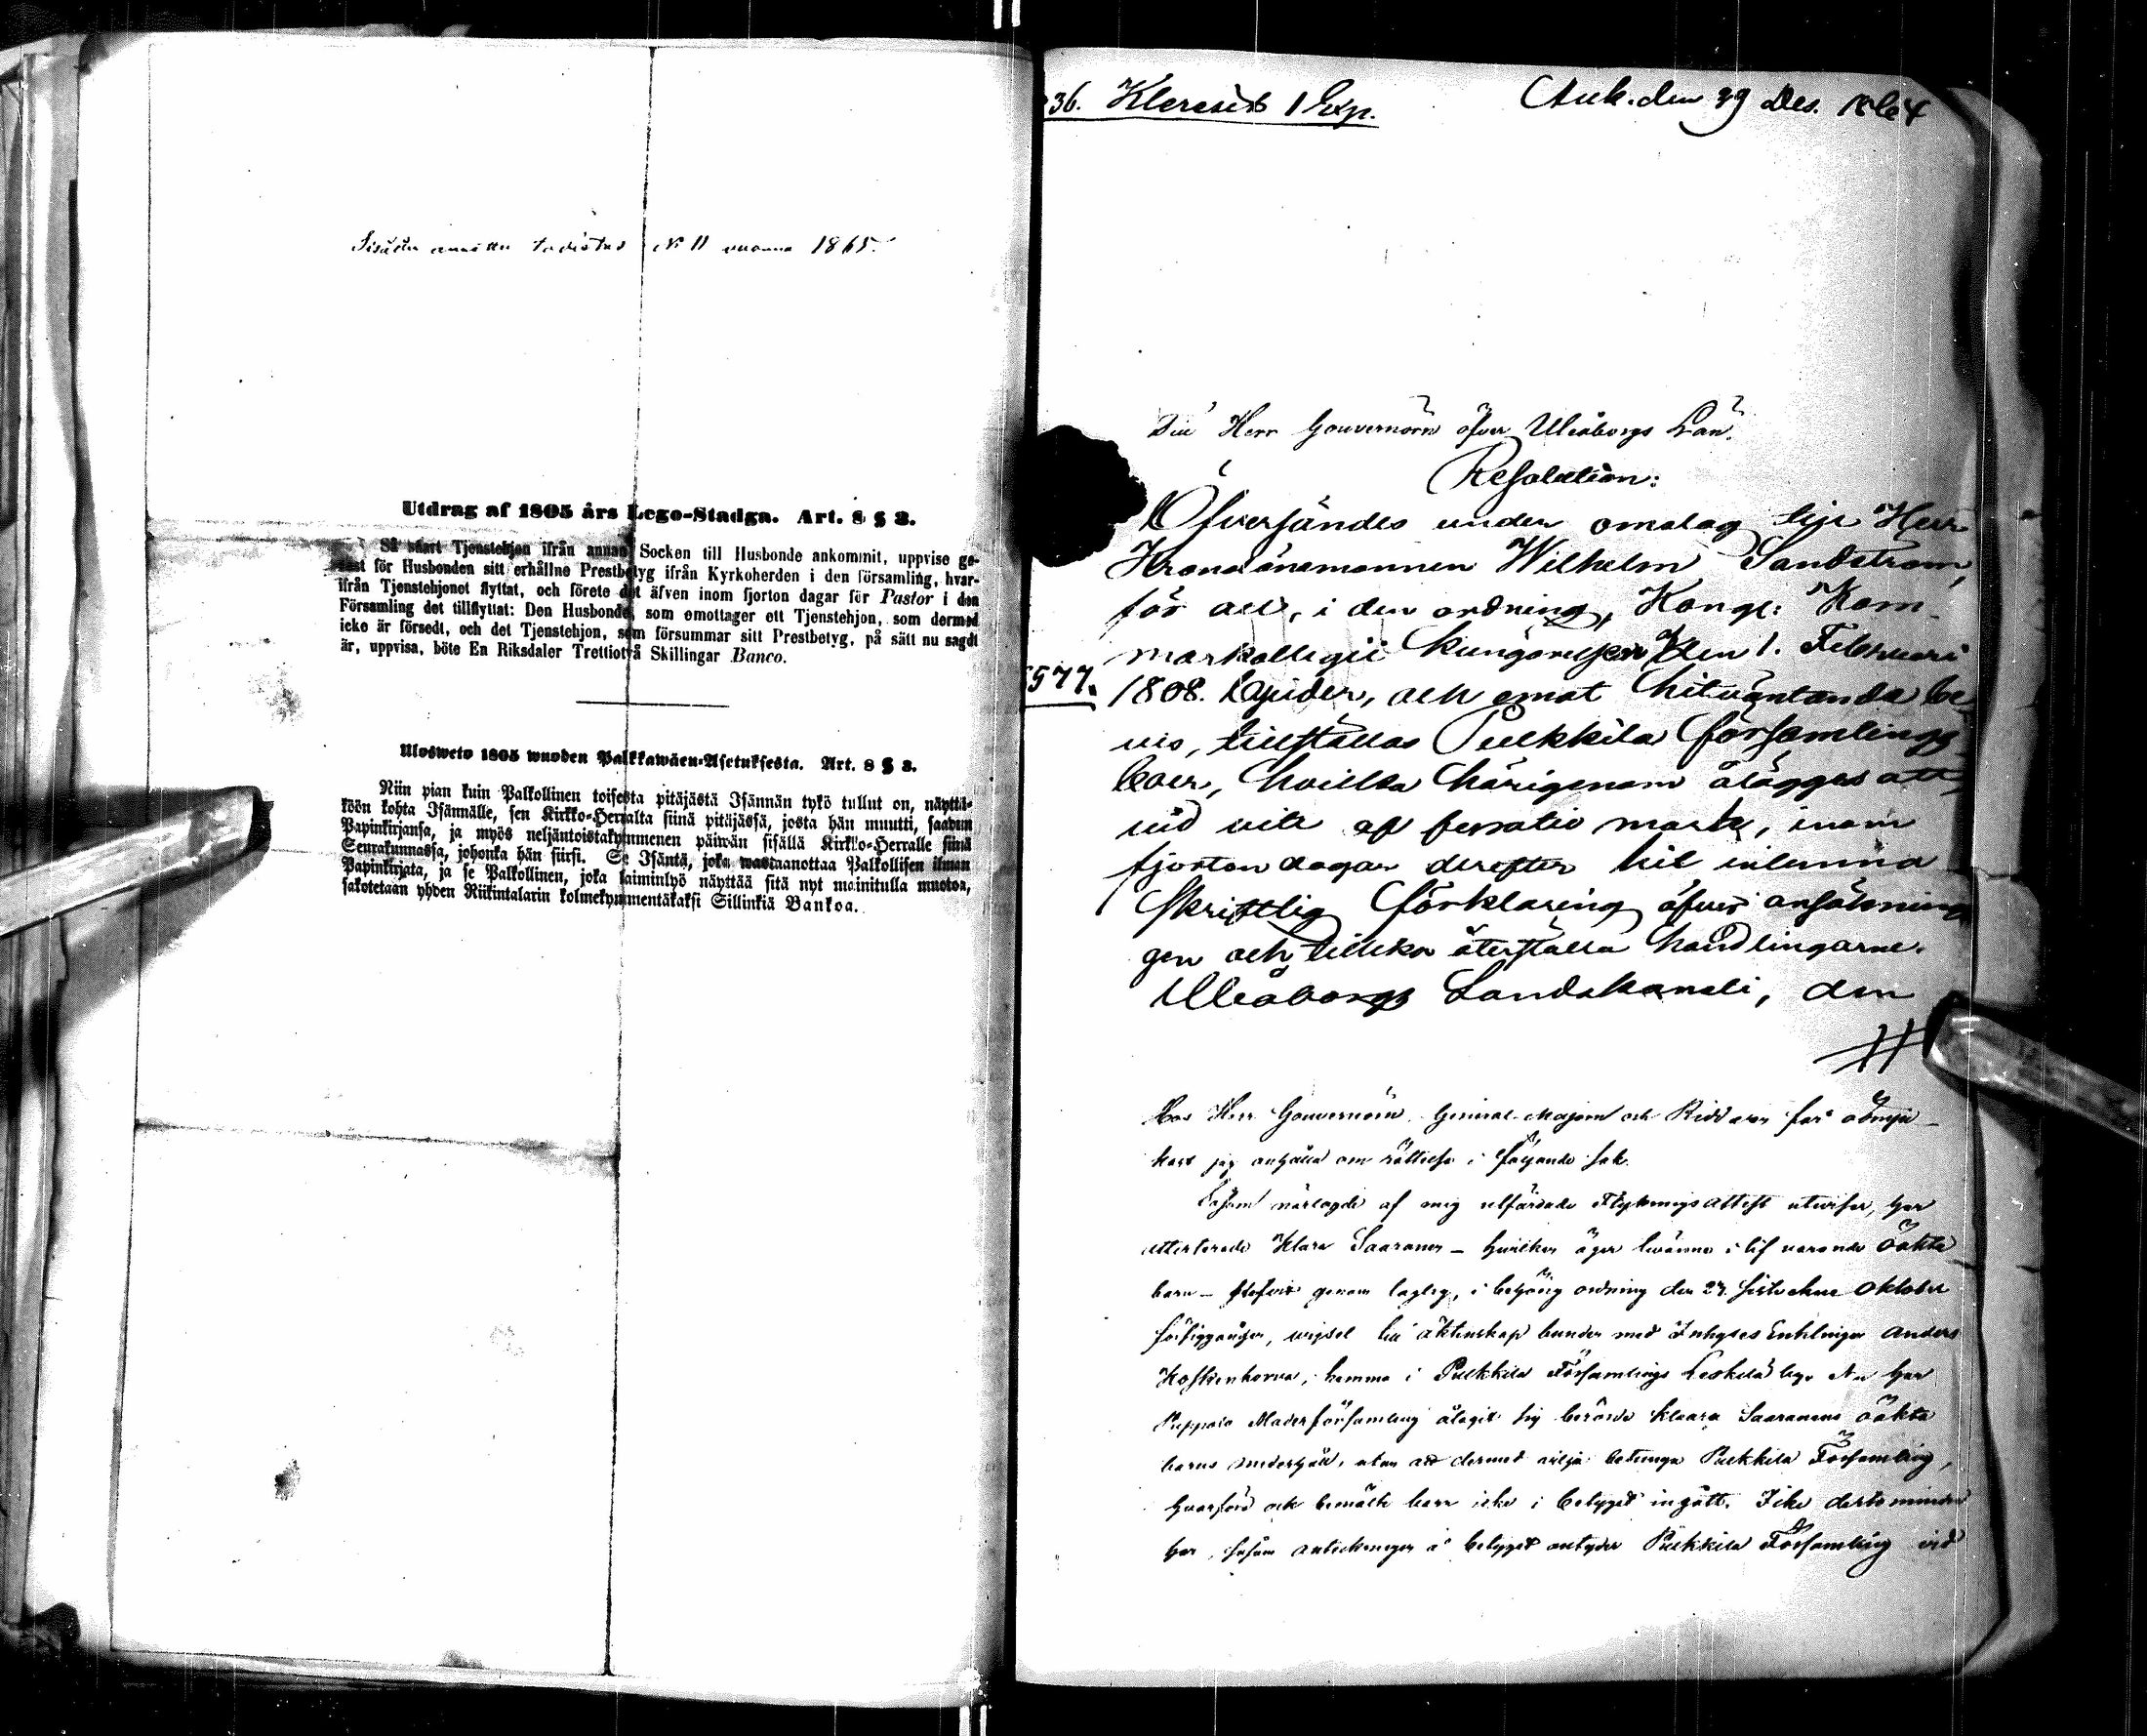 Sisään annettu todistus N:o 11 vuonna 1865.
Utdrag af 1805 års Lego-Stadga. Art. 8 § 3.
Så snart Tjenstehjon ifrån annan Socken till Husbonde ankommit, uppvise ge-
nast för Husbonden sitt erhållne Prestbetyg ifrån Kyrkoherden i den församling, hvar-
ifrån Tjenstehjonet flyttat, och förete det äfven inom fjorton dagar för Pastor i den
Församling det tillflyttat: Den Husbonde, som emottager ett Tjenstehjon, som dermed
icke är försedt, och det Tjenstehjon, som försummar sitt Prestbetyg, på sätt nu sagdt
är, uppvisa, böte En Riksdaler Trettiotvå Skillingar Banco.
Ulosweto 1805 wuoden Palkkawäen-Asetuksesta. Art. 8 § 3.
Niin pian kuin Palkollinen toisesta pitäjästä Isännän tykö tullut on, näyttä-
köön kohta Isännälle, sen Kirkko-Herralta siinä pitäjässä, josta hän muutti, saadun
Papinkirjansa, ja myös neljäntoistakymmenen päiwän sisällä Kirkko-Herralle siinä
Seurakunnassa, johonka hän siirsi. Se Isäntä, joka wastaanottaa Palkollisen ilman
Papinkirjata, ja se Palkollinen, joka laiminlyö näyttää sitä nyt mainitulla muotoa,
sakotetaan yhden Riikintalarin kolmekymmentäkaksi Sillinkiä Bankoa.
36. 1 Exp. Ank. den 29 Des. 1864
Till Herr Gouvernören öfver Uleåborgs Län.
Resolution:
Öfversändes under omslag till Herr
Kronolänsmannen Wilhelm Sandström,
för att, i den ordning, Kongl: Kam-
markollegii kungörelse den 1. Februari
577. 1808. bjuder, och emot hitväntande be-
vis, tillställas Pulkkila församlings-
boer, hvilka härigenom ålägges att,
vid vite af femtio mark, inom
fjorton dagar derefter hit inlemna
skriftlig förklaring öfver ansöknin-
gen och tillika återställa handlingarne.
Uleåborgs Landskansli, den
#
Hos Herr Gouvernören, General-Majoren och Riddaren får ödmju-
kast jag anhålla om rättelse i följande sak.
Såsom närlagde af mig utfärdade Flyttningsattest utvisar, har
attesterade Klara Saaranen - hvilken äger tvänne i lif varande oäkta
barn - blifvit genom laglig, i behörig ordning den 27. sistvekne Oktober
försiggången, vigsel till äktenskap bunden med Inhyses Enklingen Anders
Koskenkorva, hemma i Pulkkila Församlings Leskelä by. Nu har
Piippola Moderförsamling ålagit sig berörde Klara Saaranens oäkta
barns underhåll, utan att dermed vilja betunga Pulkkila Församling,
hvarföre och bemälte barn icke i betyget ingått. Icke desto mindre
har, såsom anteckningen å betyget antyder Pulkkila Församling vid